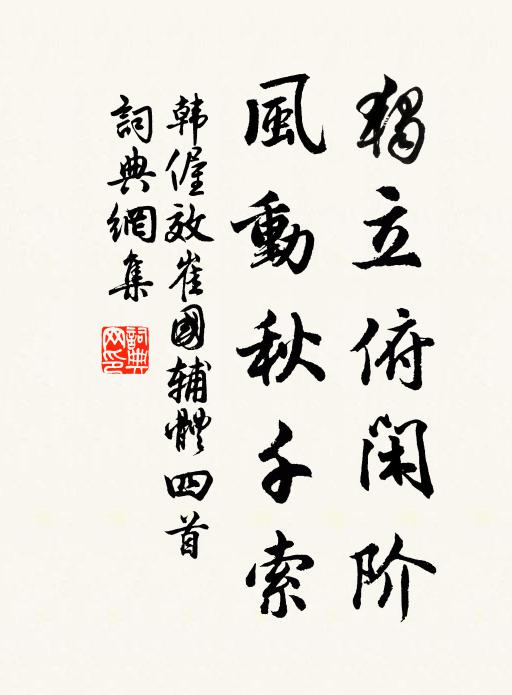 獨立俯閑阶
風動秋千索
韩偓效崔國辅體四首
詞典網集
詞典网印